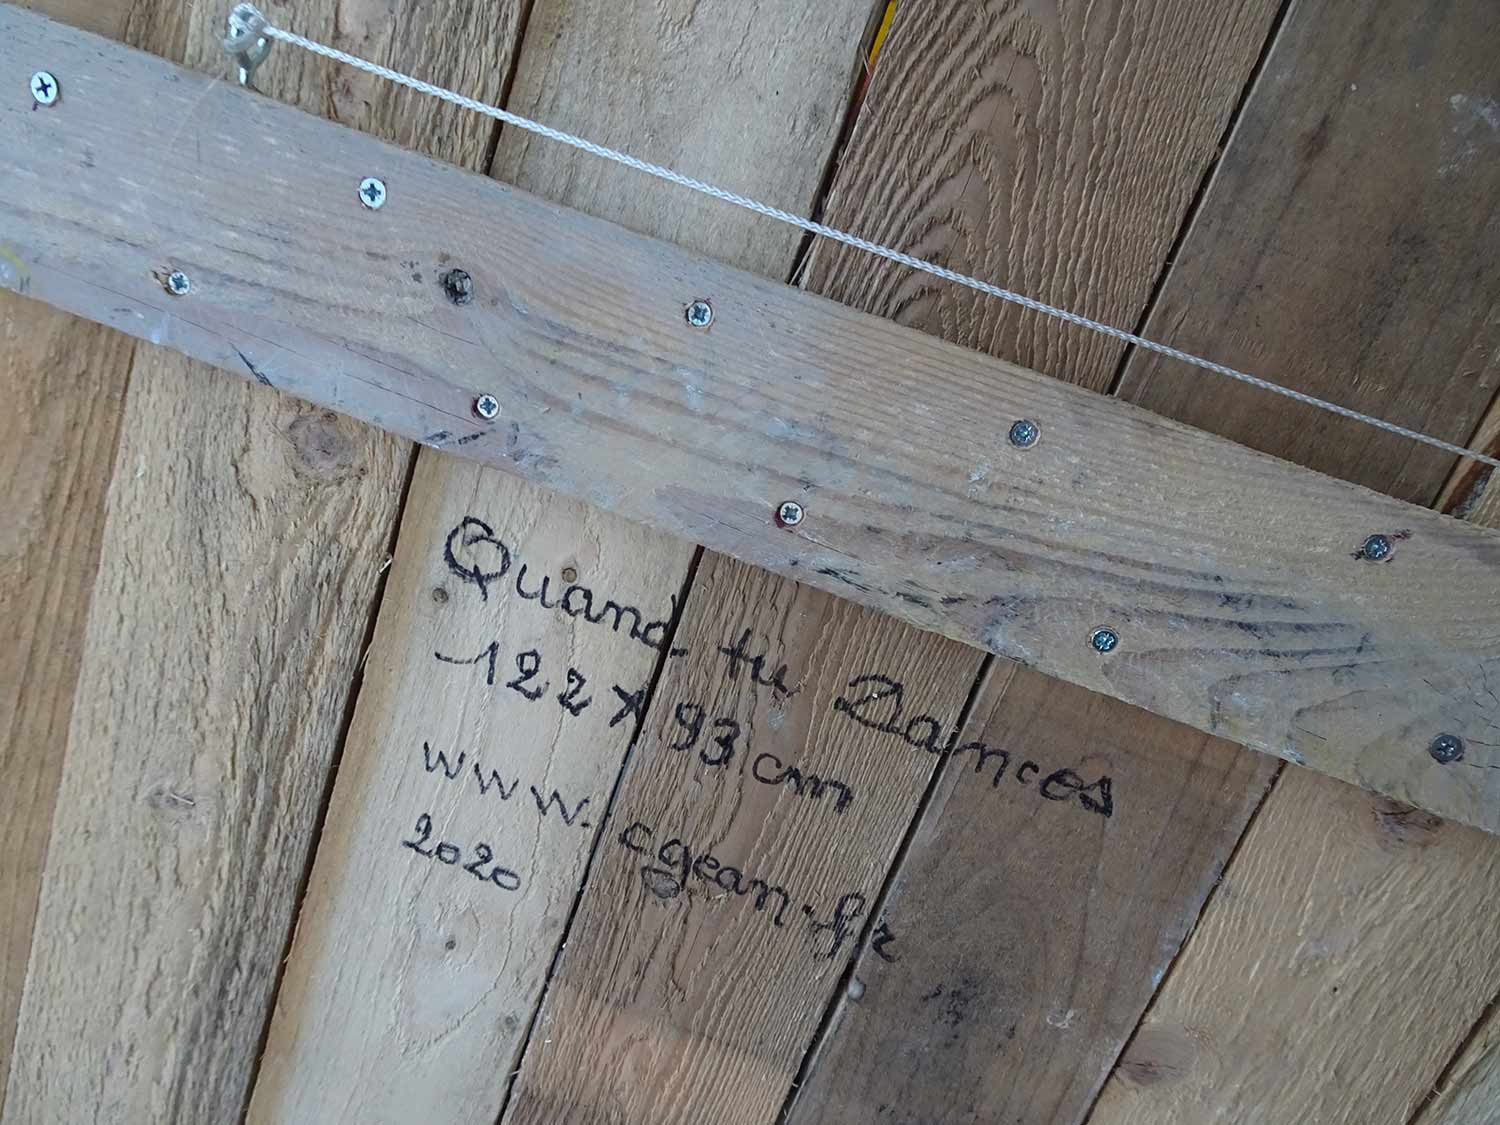 Quand tu Dances
122 x 93 cm
www.cgean.fr
2020